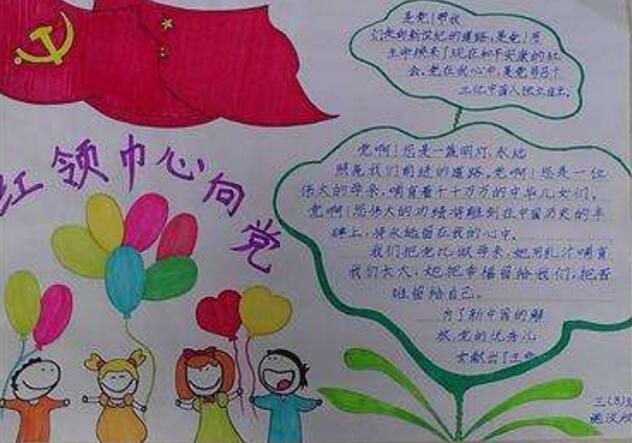 红领巾心向党
是党!帮我
们走到新世纪的道路,是党!用
生命换来了现在如平安康的社
会。党在我心中,是党
党啊!您是一盏明灯,永远
照亮我们前进的道路。党啊!您是一位
伟大的母亲,哺育着十千万万的中华儿女们。
党啊!您伟大的功绩将雕刻在中国历史的丰
碑上,将永远留在我的心中。
我们把党比做母亲,她用乳汁哺育
我们长大,她把幸福留给我们,把
留给自己。
为了新中国的解
放,党的优秀儿
女献出了生命
三(8)